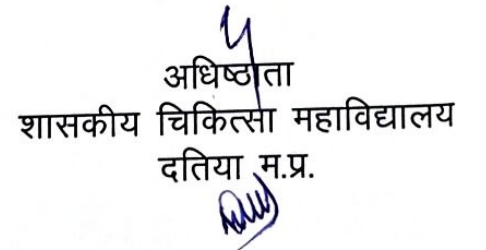 अधिष्ठाता
शासकीय चिकित्सा महाविद्यालय
दतिया म.प्र.